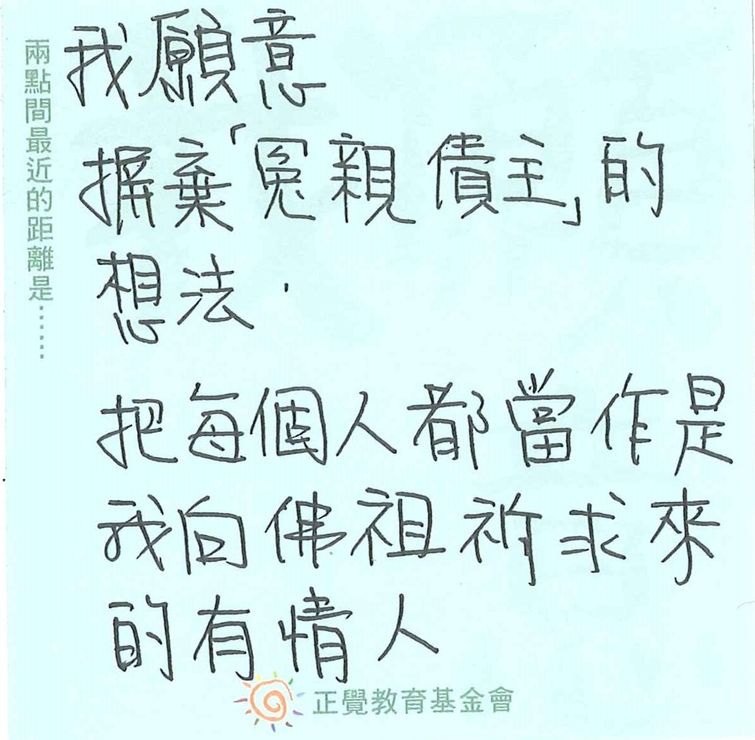 兩點間最近的距離是⋯⋯
我願意
摒棄「冤親債主」的
想法.
把每個人都當作是
我向佛祖祈求來
的有情人
正覺教育基金會